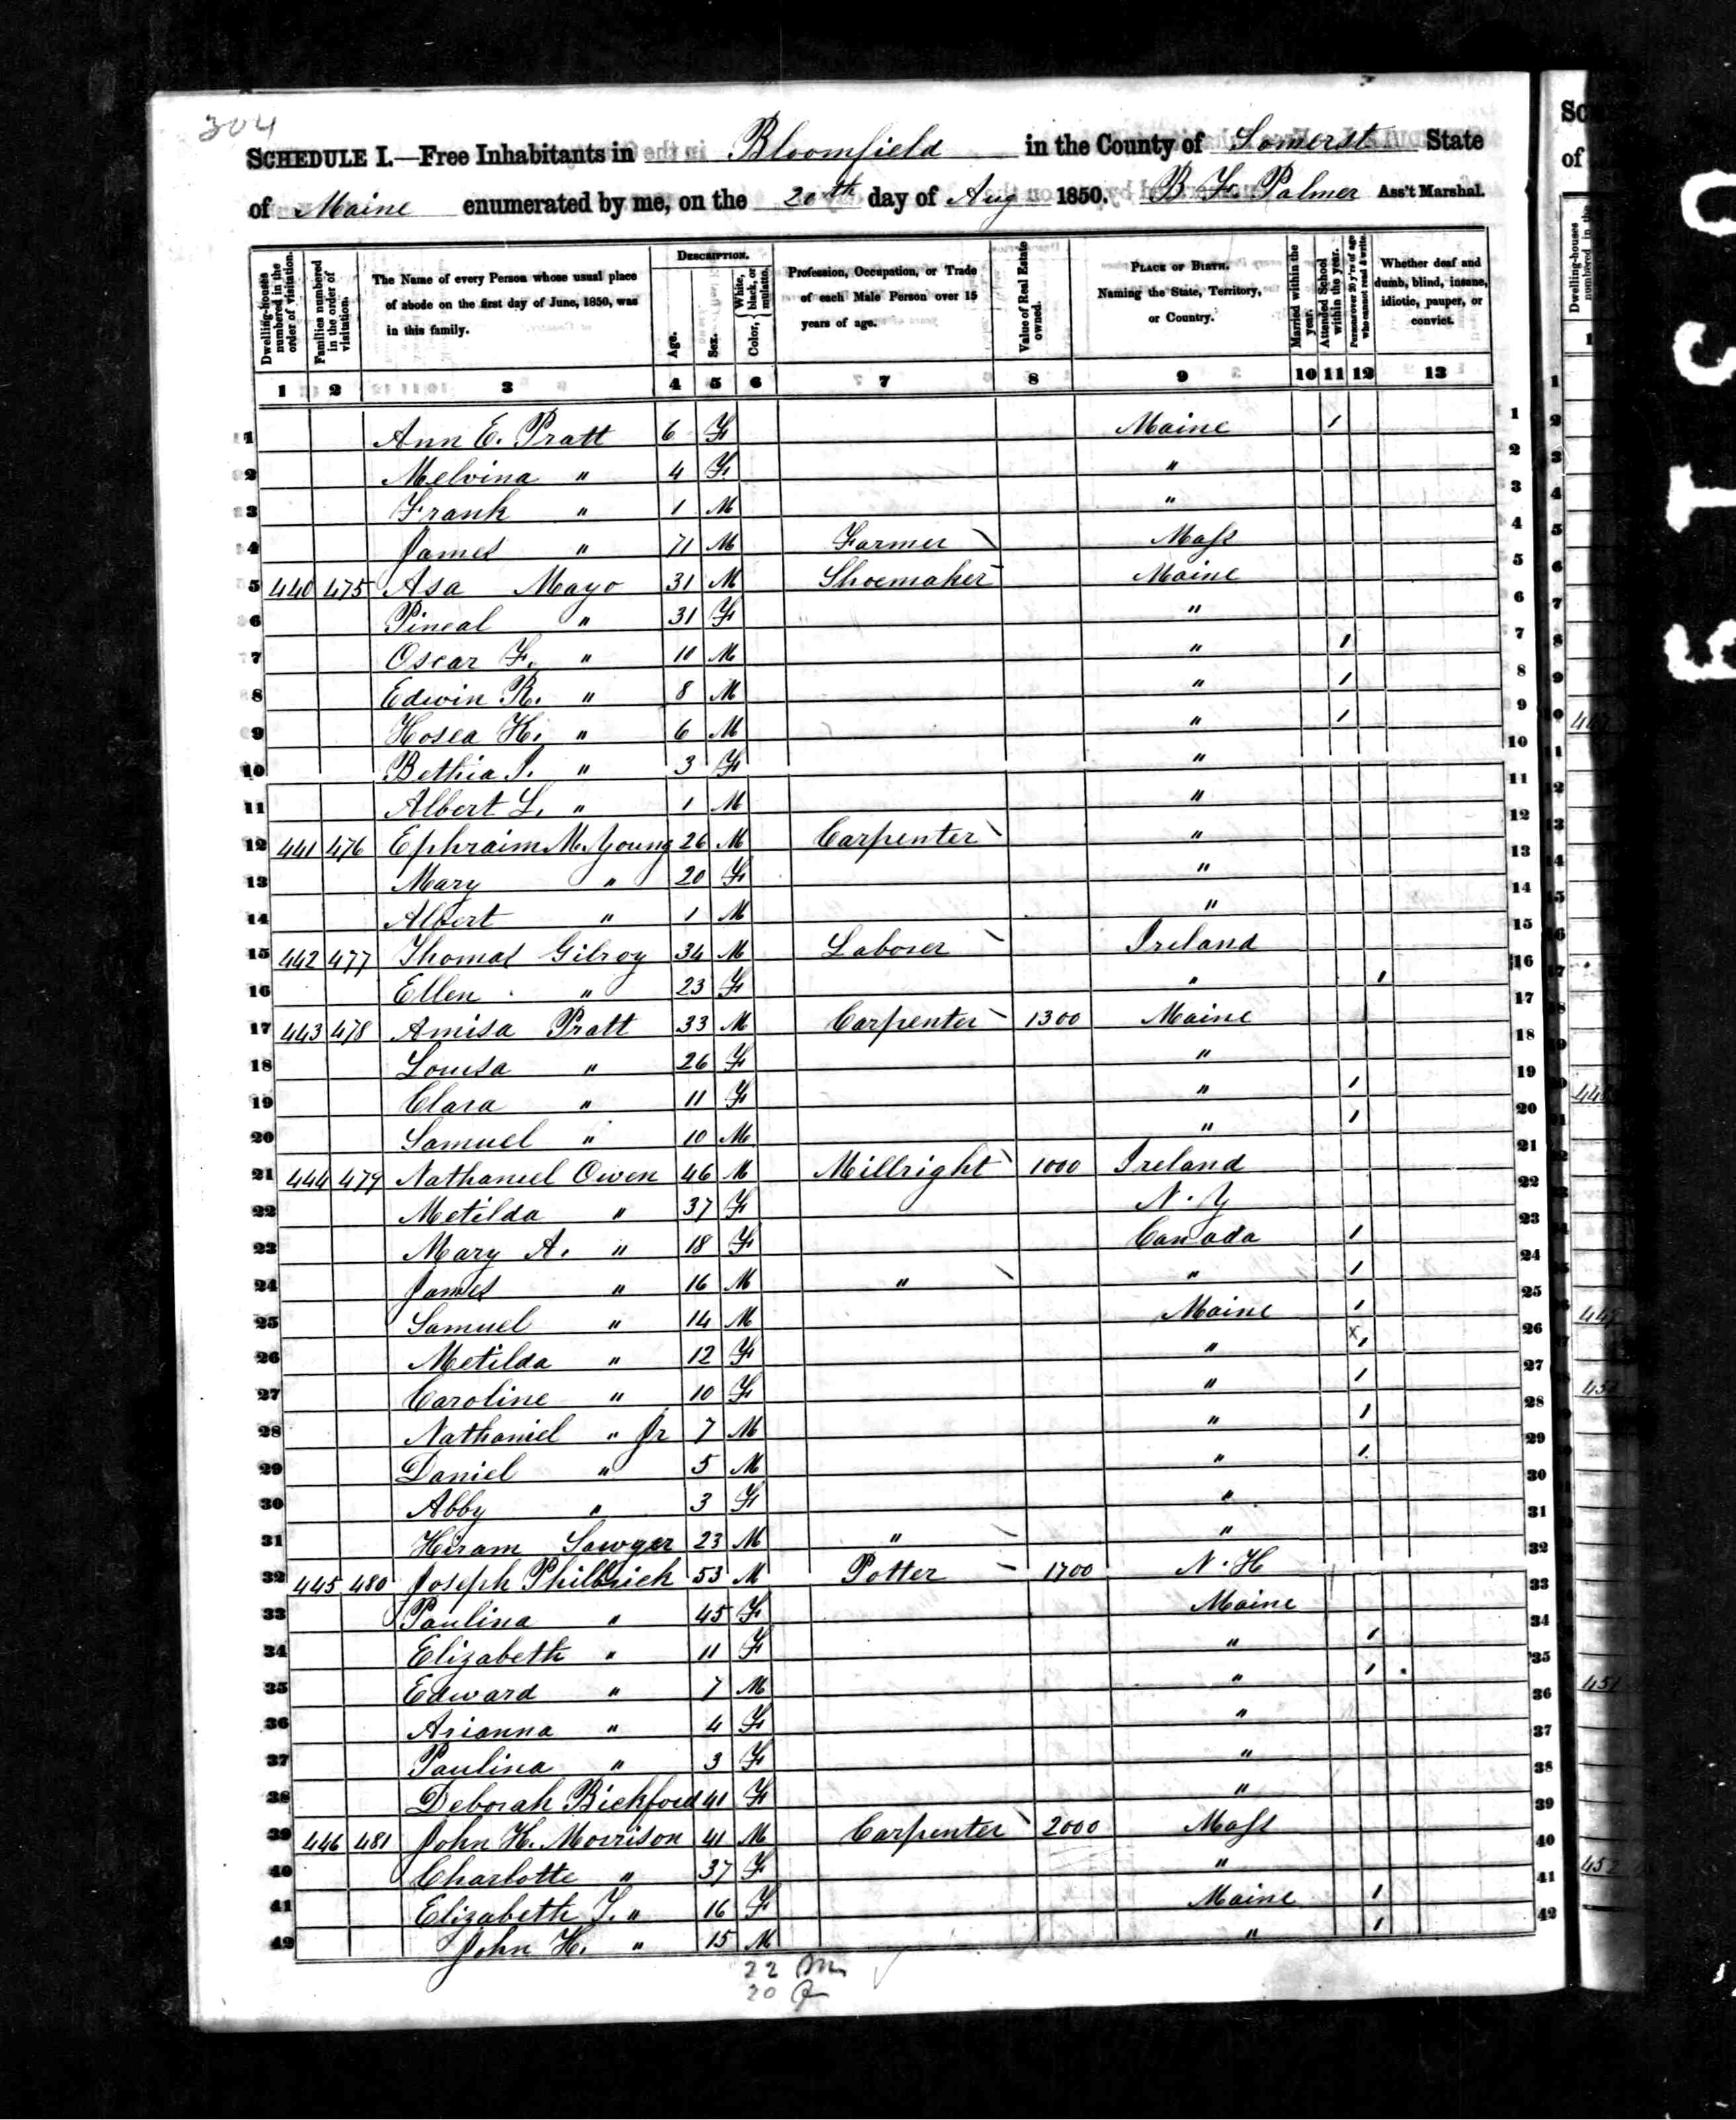 304
SCHEDULE I.—Free Inhabitants in Bloomfield in the County of Somerset State
of Maine enumerated by me, on the 20th day of Aug 1850. B F. Palmer Ass't Marshal.
Dwelling-houses numbered in the order of visitation.
Families numbered in the order of visitation.
The Name of every Person whose usual place of abode on the first day of June, 1850, was in this family.
DESCRIPTION.
Age.
Sex.
Color, White, black, or mulatto.
Profession, Occupation, or Trade of each Male Person over 15 years of age.
Value of Real Estate owned.
PLACE OF BIRTH. Naming the State, Territory, or Country.
Married within the year.
Attended School within the year.
Persons over 20 y'rs of age who cannot read & write.
Whether deaf and dumb, blind, insane, idiotic, pauper, or convict.
1 2 3 4 5 6 7 8 9 10 11 12 13
1 Ann E. Pratt 6 F Maine / 1
2 Melvina " 4 F " 2
3 Frank " 1 M " 3
4 James " 71 M Farmer Mass 4
5 440 475 Asa Mayo 31 M Shoemaker Maine 5
6 Pineal " 31 F " 6
7 Oscar F. " 10 M " / 7
8 Edwin R. " 8 M " / 8
9 Hosea H. " 6 M " / 9
10 Bethia J. " 3 F " 10
11 Albert L. " 1 M " 11
12 441 476 Ephraim M. Young 26 M Carpenter " 12
13 Mary " 20 F " 13
14 Albert " 1 M " 14
15 442 477 Thomas Gilroy 34 M Laborer Ireland 15
16 Ellen " 23 F " / 16
17 443 478 Amisa Pratt 33 M Carpenter 1300 Maine 17
18 Louisa " 26 F " 18
19 Clara " 11 F " / 19
20 Samuel " 10 M " / 20
21 444 479 Nathaniel Owen 46 M Millright 1000 Ireland 21
22 Metilda " 37 F N.Y 22
23 Mary A. " 18 F Canada / 23
24 James " 16 M " " / 24
25 Samuel " 14 M Maine / 25
26 Metilda " 12 F " x / 26
27 Caroline " 10 F " / 27
28 Nathaniel " Jr 7 M " / 28
29 Daniel " 5 M " / 29
30 Abby " 3 F " 30
31 Hiram Sawyer 23 M " " 31
32 445 480 Joseph Philbrick 53 M Potter 1700 N.H 32
33 Paulina " 45 F Maine 33
34 Elizabeth " 11 F " / 34
35 Edward " 7 M " / 35
36 Arianna " 4 F " 36
37 Paulina " 3 F " 37
38 Deborah Bickford 41 F " 38
39 446 481 John H. Morrison 41 M Carpenter 2000 Mass 39
40 Charlotte " 37 F " 40
41 Elizabeth T. " 16 F Maine / 41
42 John H. " 15 M " / 42
22 M
20 F